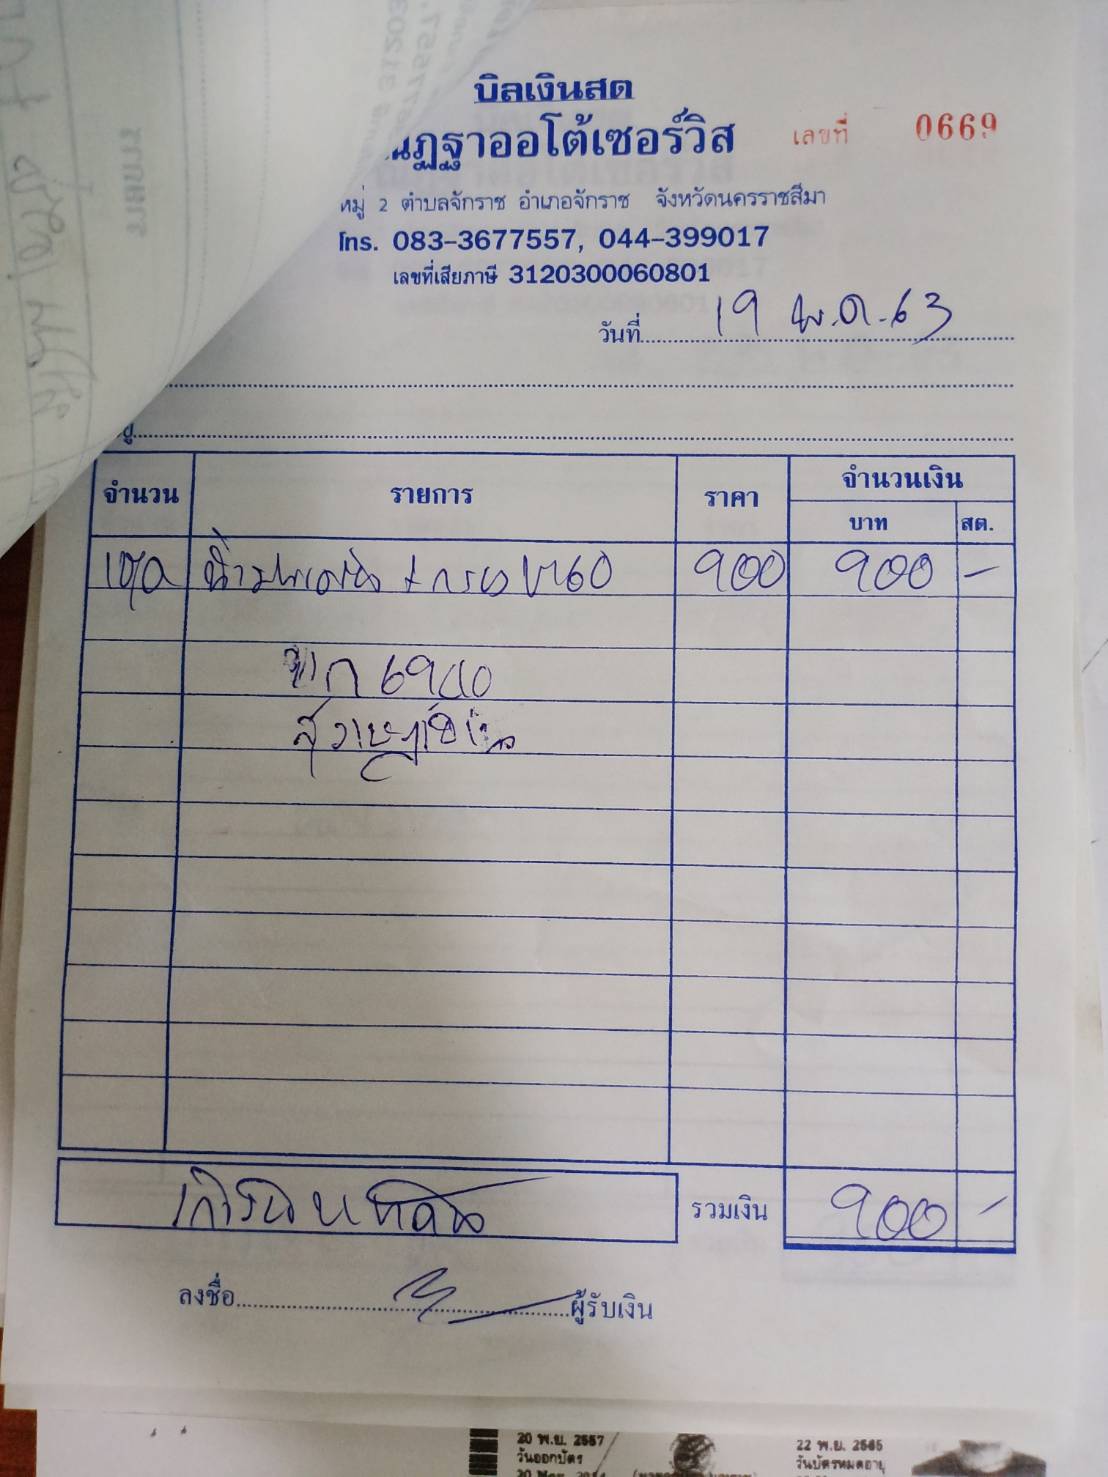 บิลเงินสด
ณัฏฐาออโต้เซอร์วิส เลขที่ 0669
หมู่ 2 ตำบลจักราช อำเภอจักราช จังหวัดนครราชสีมา
โทร. 083-3677557, 044-399017
เลขที่เสียภาษี 3120300060801
วันที่ 19 พ.ค. 63
จำนวน รายการ ราคา จำนวนเงิน
บาท สต.
1ชุด น้ำมันเครื่อง + กรอง 900 900 -
6980
สุราษฎร์ธานี
เก้าร้อยบาทถ้วน รวมเงิน 900 -
ลงชื่อ ผู้รับเงิน
20 พ.ย. 2557
วันออกบัตร
22 พ.ย. 2565
วันบัตรหมดอายุ